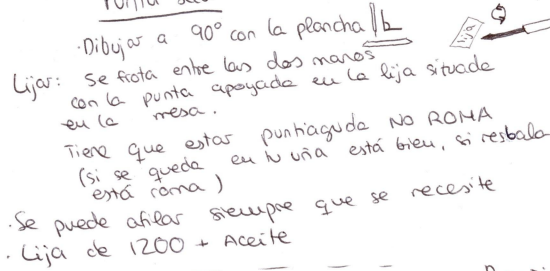 Punta Seca
· Dibujar a 90° con la plancha
Lija
Lijar: Se frota entre las dos manos
con la punta apoyada en la lija situada
en la mesa.
Tiene que estar puntiaguda NO ROMA
(si se queda en tu uña está bien, si resbala
está roma)
· Se puede afilar siempre que se necesite
· Lija de 1200 + Aceite